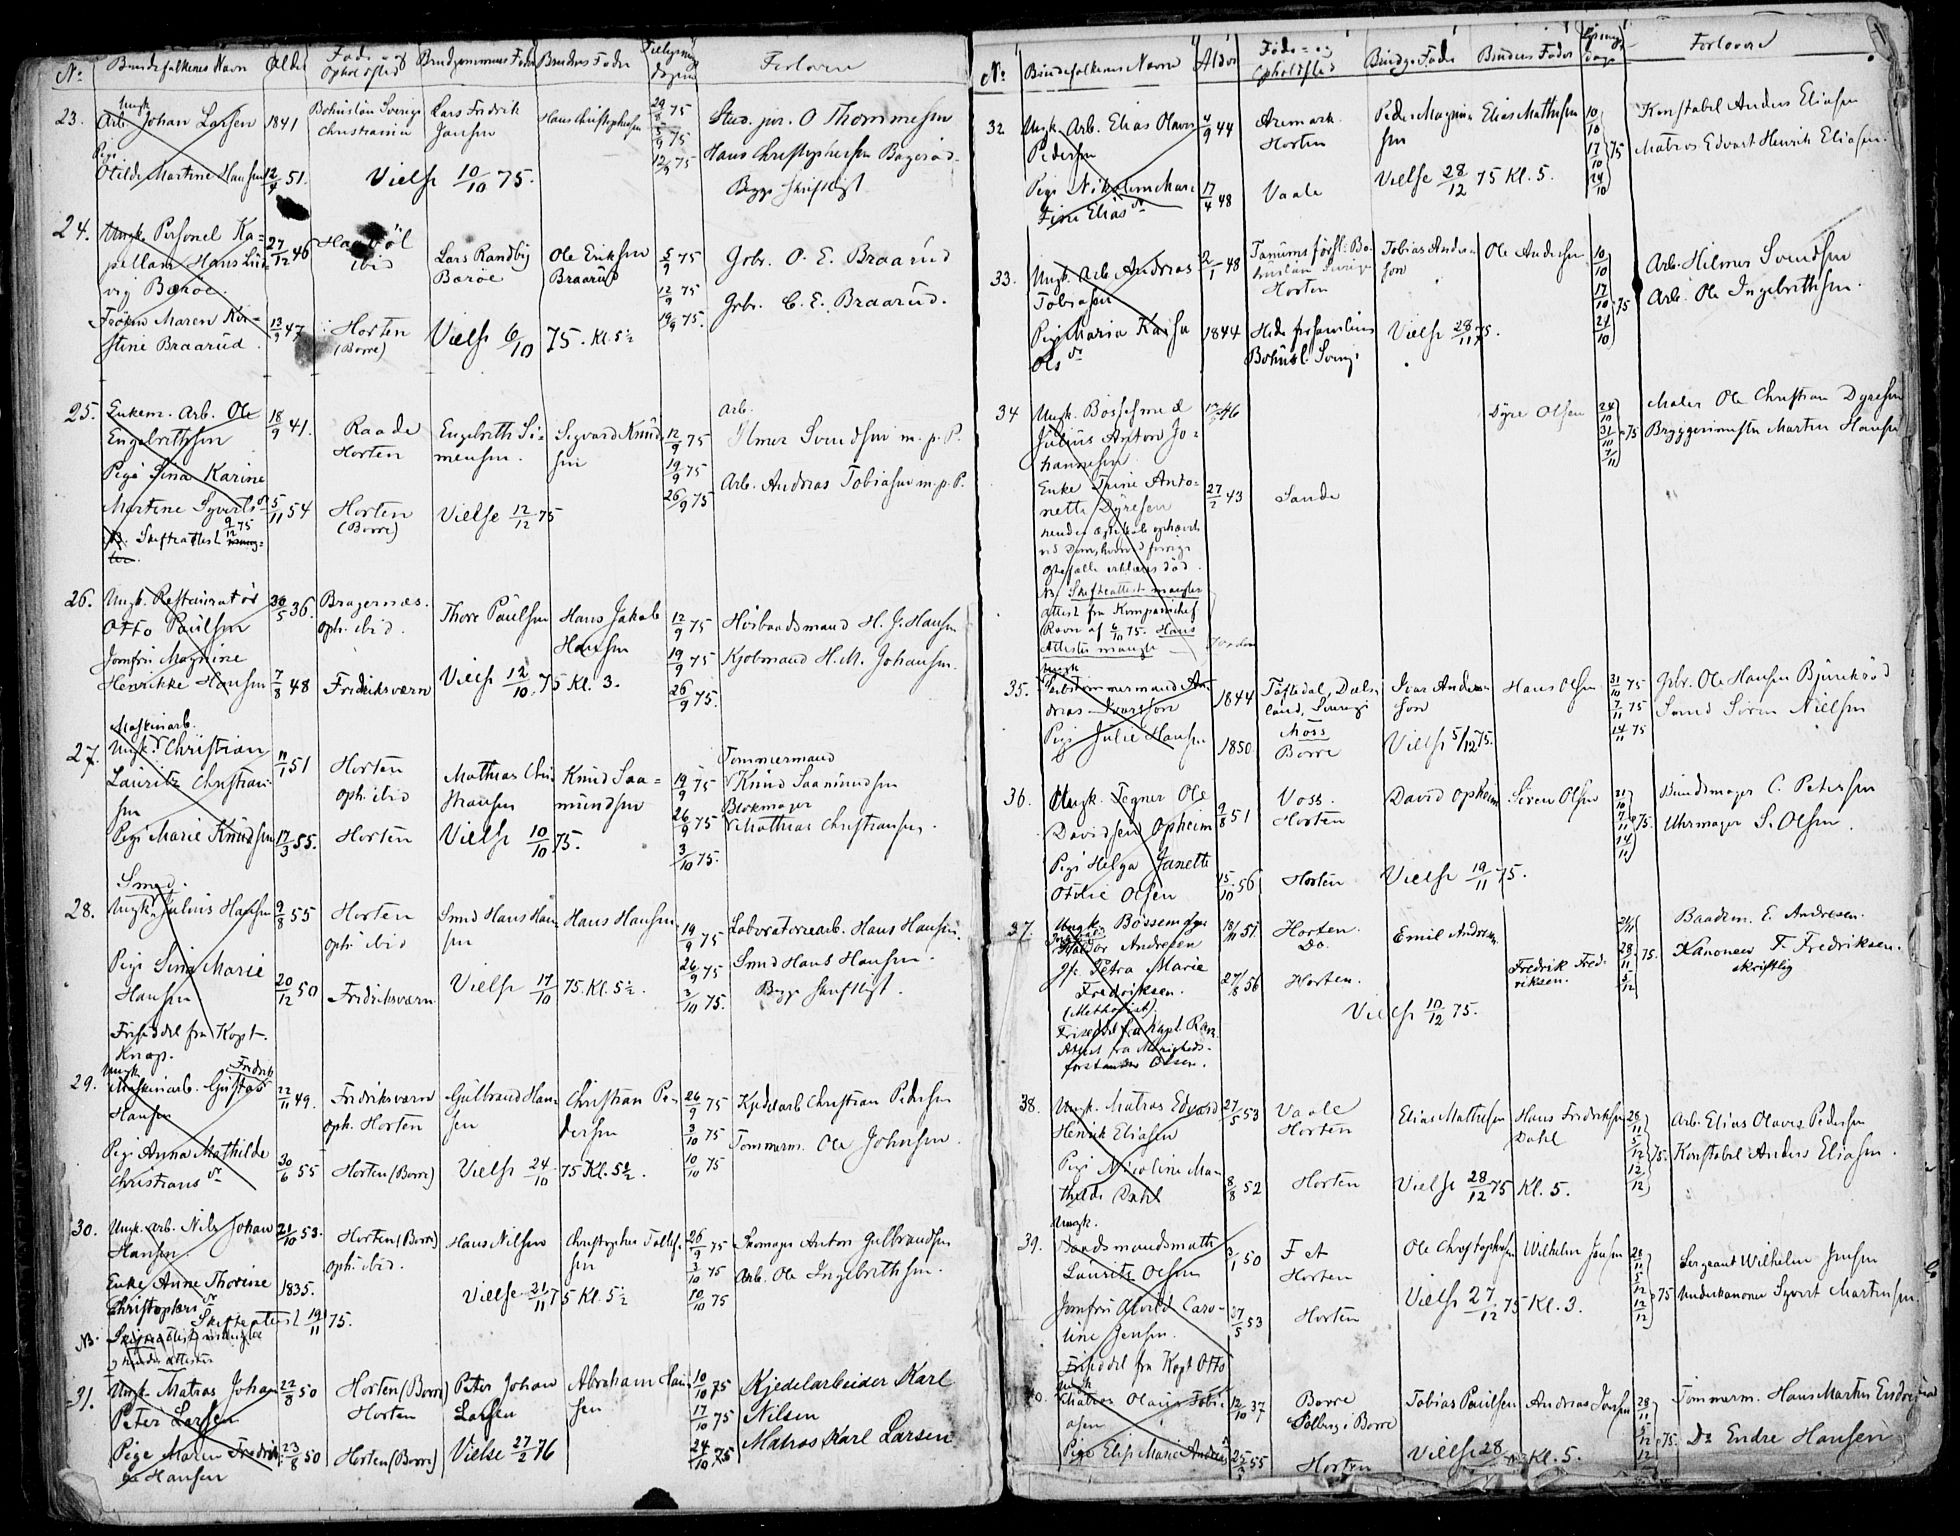 No. Brudefolkenes Navn Alder Føde- og Opholdssted Brudgommens Fader Brudens Fader Tillysningsdagene Forlovere
23. Ungk. Arb. Johan Larsen 1841 Bohuslän Sverige Christiania Lars Fredrik Jansen Hans Christophersen 29/8 75 5/9 75 12/9 75 Stud. jur. O Thommesen
Pige Otilde Martine Hansen 12/9 51. Vielse 10/10 75. Hans Christophersen Bagerød.
Begge skriftligt
24. Ungk. Personel Kapellan Hans Ludvig Barøe. 27/12 46 Haabøl ibid Lars Randby Barøe Ole Eriksen Braarud 5/9 75 12/9 75 19/9 75. Gbr. O. E. Braarud
Gbr. C. E. Braarud.
Frøken Maren Kirstine Braarud. 13/9 47 Horten (Borre) Vielse 6/10 75. Kl. 5½
25. Enkem. Arb. Ole Engebrithsen 18/9 41. Raade Horten Engebrith Simensen. Sigvard Knudsen 12/9 75 19/9 75 26/9 75 Arb. Ilmer Svendsen m. p. P.
Arb. Andreas Tobiasen m. p. P.
Pige Sina Karine Martine Syverts dr 5/11 54 Horten (Borre) Vielse 12/12 75
NB. Skifteattest 9/12 75 mangler.
26. Ungk. Restauratør Otto Paulsen 30/5 36. Bragernæs. oph. ibid. Thore Paulsen Hans Jakob Hansen 12/9 75 19/9 75 26/9 75. Havbaadsmand H. J. Hansen
Kjøbmand H. M. Johansen.
Jomfru Magnine Henrikke Hansen 7/8 48 Fredriksværn Vielse 12/10 75 Kl. 3.
27. Maskinarb. Ungk. Christian Lauritz Christiansen 11/1 51 Horten oph. ibid Mathias Christiansen Knud Saamundsen 19/9 75 26/9 75 3/10 75. Tømmermand Knud Saamundsen
Blokmager Mathias Christiansen.
Pige Marie Knudsen 17/3 55. Horten Vielse 10/10 75.
28. Smed. Ungk. Julius Hansen 9/8 55 Horten oph. ibid Smed Hans Hansen Hans Hansen 19/9 75 26/9 75 3/10 75. Laboratoriearb. Hans Hansen.
Smed Hans Hansen.
Begge skriftligt.
Pige Sina Marie Hansen 20/12 50 Fredriksværn Vielse 17/10 75. Kl. 5½.
Friseddel fra Kapt. Knap.
29. Ungk. Maskinarb. Gustav Fredrik Hansen 22/11 49. Fredriksværn oph. Horten Gulbrand Hansen Christian Pedersen 26/9 75 3/10 75 10/10 75 Kjedelarb Christian Pedersen
Tømmerm. Ole Johnsen.
Pige Anna Mathilde Christians dr 30/6 55 Horten (Borre) Vielse 24/10 75 Kl. 5½.
30. Ungk. Arb. Nils Johan Hansen. 21/10 53. Horten (Borre) oph. ibid. Hans Nilsen Christopher Tollefsen 26/9 75 3/10 75 10/10 75 Skomager Anton Gulbrandsen
Arb. Ole Ingebrithsen.
Enke Anne Thorine Christophers dr 1835. Vielse 21/11 75 Kl. 5½
NB. Skifteattest 19/11 75.
31. Ungk. Matros Johan Peter Larsen 22/8 50 Horten (Borre) Horten Peter Johan Larsen Abraham Hansen 10/10 75 17/10 75 24/10 75 Kjedelarbeider Karl Nilsen
Matros Karl Larsen
Pige Maren Fredrikke Hansen 23/8 50 Horten (Borre) Vielse 27/2 76
No. Brudefolkenes Navn Alder Føde- og Opholdssted Brudg. Fader Brudens Fader Lysningsdage Forlovere
32 Ungk. Arb. Elias Olaves Pedersen 4/9 44 Aremark. Horten Peder Magnussen Elias Mathesen 10/10 17/10 24/10 75 Konstabel Anders Eliasen
Matros Edvart Henrik Eliasen.
Pige Nikoline Martine Elias dr 17/4 48 Vaale Vielse 28/12 75 Kl. 5.
33. Ungk. Arb Andreas Tobiasen 2/1 48 Tanums förs.: Bohuslän Sverige Horten Tobias Anderson Ole Andersen 10/10 17/10 24/10 75 Arb. Hilmer Svendsen
Arb. Ole Ingebrithsen.
Pige Maria Kaisa Ols dr 1844 Hede församling Bohusl. Sverige Vielse 28/11 75.
34 Ungk. Bøssesmed Julius Anton Johannesen 46 Dyre Olsen 24/10 31/10 7/11 75 Maler Ole Christian Dyresen
Bryggerimester Martin Hansen
Enke Trine Antonette Dyresen 27/2 43 Sande
NB. Skifteattest mangler
Attest fra Kompanichef Ravn af 6/10 75. Hans Attester mangle
35. Ungk. Tømmermand Andreas Ivarsson 1844 Töftedal, Dalsland, Sverige Moss Ivar Anderson Hans Olsen 31/10 75 7/11 75 14/11 75 Gbr. Ole Hansen Bjünkrød
Smed Søren Nielsen
Pige Julie Hansen 1850. Borre Vielse 5/12 75.
36. Ungk. Tegner Ole Davidsen Opheim 9/8 51 Voss. Horten David Opheim Søren Olsen 31/10 7/11 14/11 75. Bundtmager C. Petersen
Uhrmager S. Olsen.
Pige Helga Janette Otilie Olsen 15/10 56 Horten Vielse 19/11 75.
37. Ungk. Bøssemager Halvor Andresen 18/11 51. Horten. Do. Emil Andresen. Fredrik Fredriksen. 21/11 28/11 5/12 75. Baadsm. E. Andresen.
Kanoneer F. Fredriksen. skriftlig
Pge. Petra Marie Fredriksen. (Methodist) 27/8 56 Horten. Vielse 10/12 75.
Friseddel fra Kapt. Ravn. Attest fra Menighedsforstander Olsen.
38. Ungk. Matros Edvard Henrik Eliasen 27/5 53 Vaale Horten Elias Mathesen Hans Fredriksen Dahl 28/11 5/12 12/12 75. Arb. Elias Olaves Pedersen
Konstabel Anders Eliasen.
Pige Nicoline Mathilde Dahl 8/8 52 Horten Vielse 28/12 75 Kl. 5.
39. Ungk. Baadsmandsmath Lauritz Olsen 3/1 50 Fet Horten Ole Christophersen Wilhelm Jensen 28/11 5/12 12/12 75 Sergeant Wilhelm Jensen
Underkanoner Syvert Martinsen.
Jomfru Caroline Jensen. 27/5 53 Horten Vielse 27/12 75 Kl. 3.
Friseddel fra Kapt Otto
40. Ungk Matros Olaus Tobiasen 12/10 37 Borre Solberg i Borre Tobias Paulsen Andreas Jensen 28/11 5/12 12/12 75. Tømmerm. Hans Martin Endresen
Do Endre Hansen
Pige Elise Marie Andreas 55 Horten Vielse 28/12 Kl. 5.